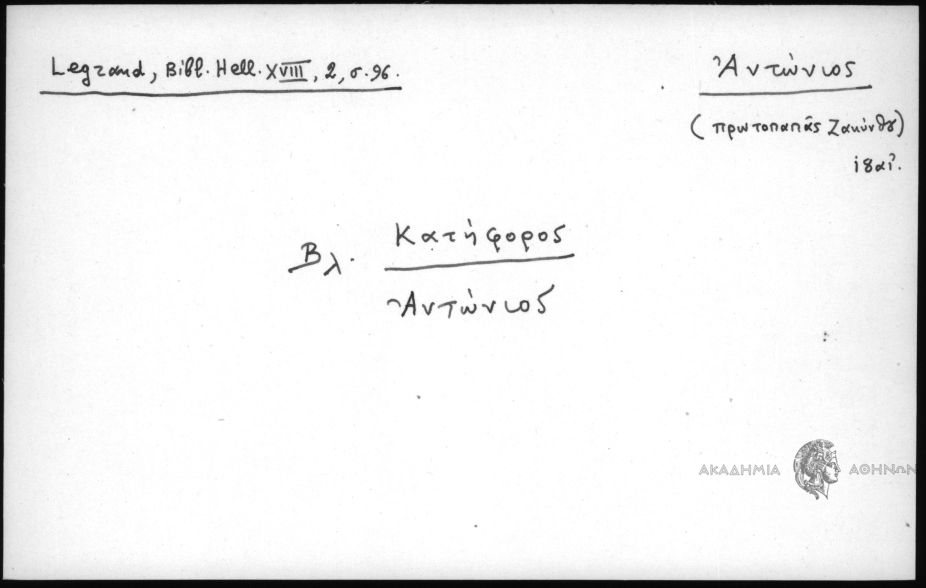 Legrand, Bibl. Hell. XVIII, 2, σ. 96.
Ἀντώνιος
(πρωτοπαπᾶς Ζακύνθου)
ι8αι.
Βλ. Κατήφορος
Ἀντώνιος
ΑΚΑΔΗΜΙΑ ΑΘΗΝΩΝ